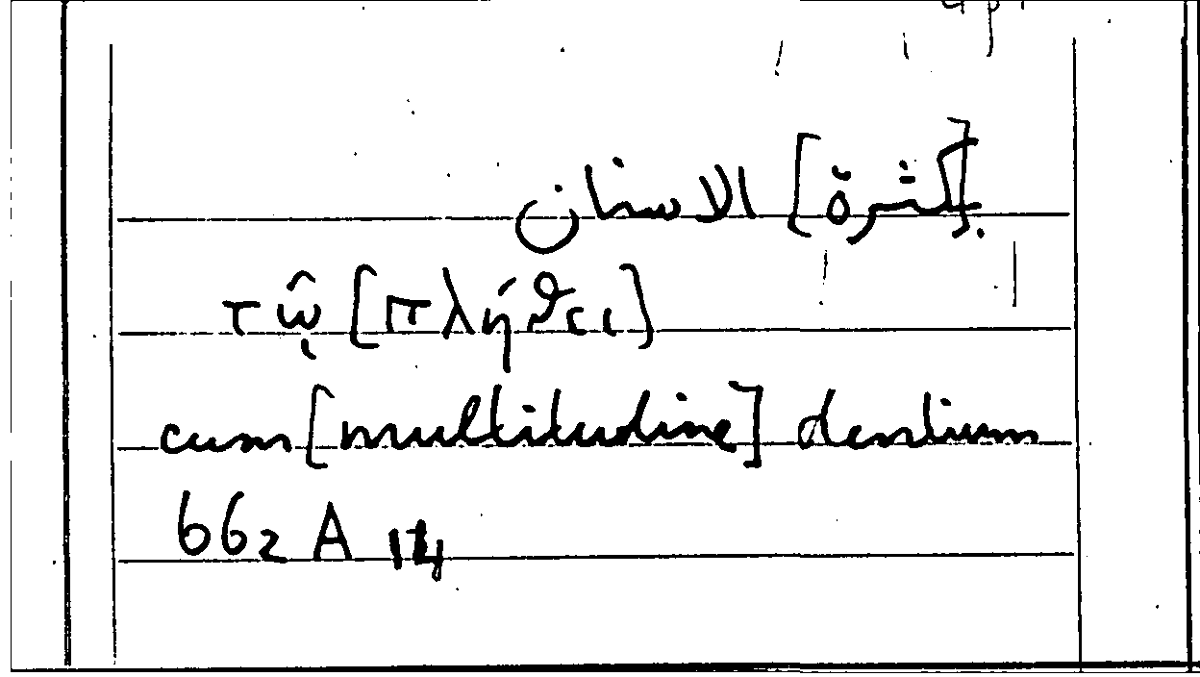 ب[كثرة] الاسنان
τῷ [πλήθει]
cum [multitudine] dentium
662 A 14